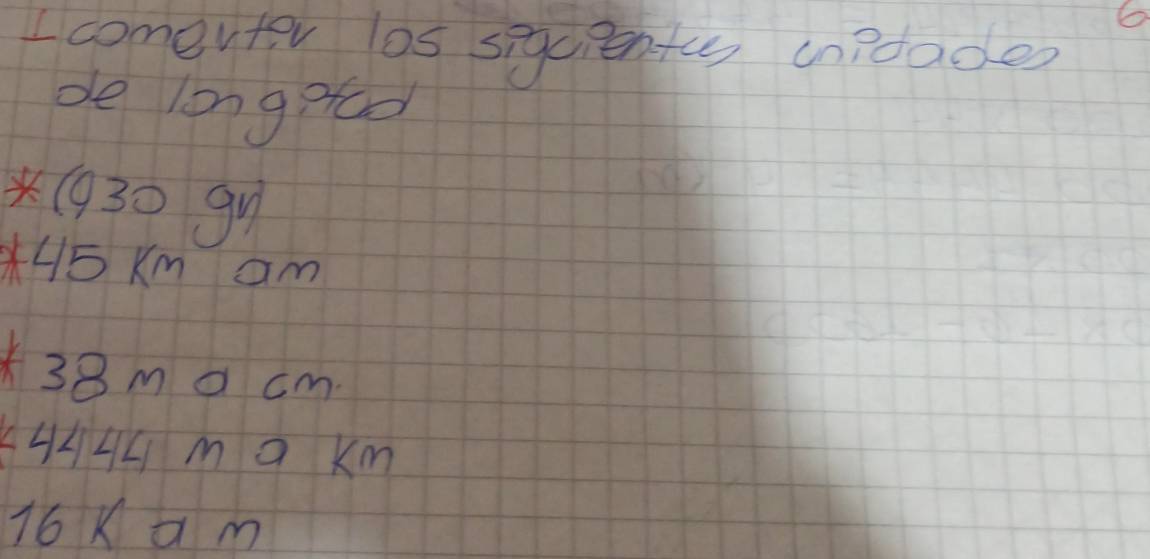 I comerter los siguientes unidades
de longitud
* (930 gr)
* 45 Km a m
* 38 m a cm.
* 4444 m a Km
16 K a m
6